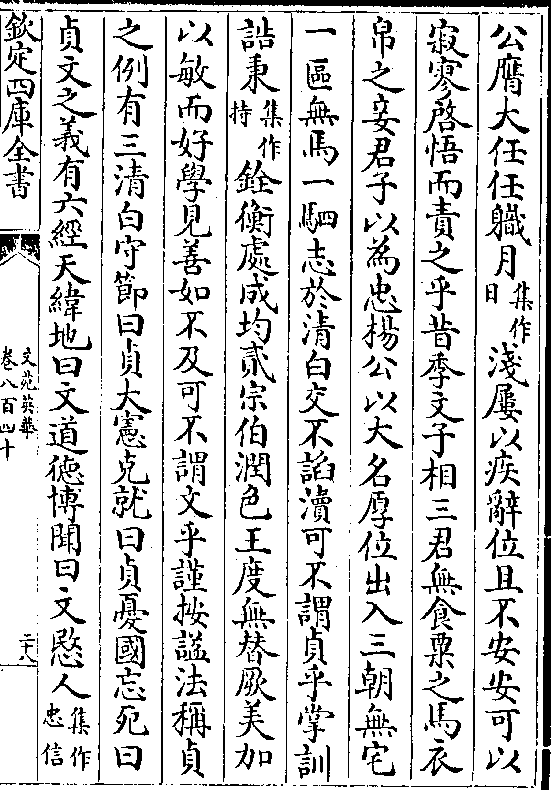 公膺大任任職月集作日淺屢以疾辭位且不安安可以
寂寥啓悟而責之乎昔季文子相三君無食粟之馬衣
帛之妾君子以為忠楊公以大名厚位出入三朝無宅
一區無馬一駟志於清白交不諂瀆可不謂貞乎掌訓
誥秉集作持銓衡處成均貳宗伯潤色王度無替厥美加
以敏而好學見善如不及可不謂文乎謹按諡法稱貞
之例有三清白守節曰貞大憲克就曰貞憂國忘死曰
貞文之義有六經天緯地曰文道德博聞曰文愍人集作忠信
欽定四庫全書
文苑英華
卷八百四十
二十八